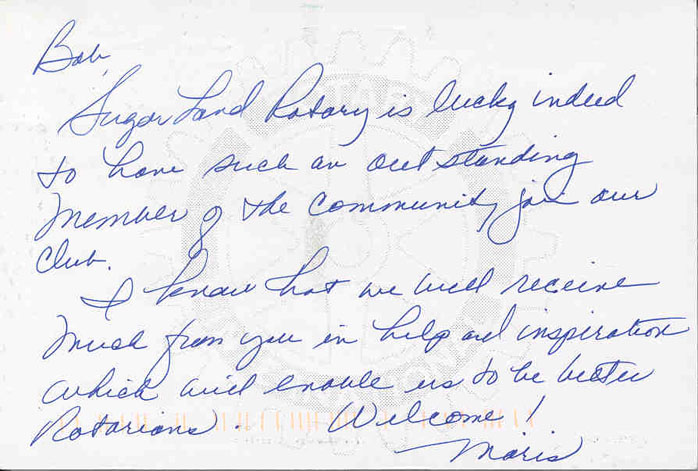 Bob,
Sugar Land Rotary is lucky indeed
to have such an outstanding
member of the community join our
club.
I know that we will receive
much from you in help and inspiration
which will enable us to be better
Rotarians. Welcome!
Maris